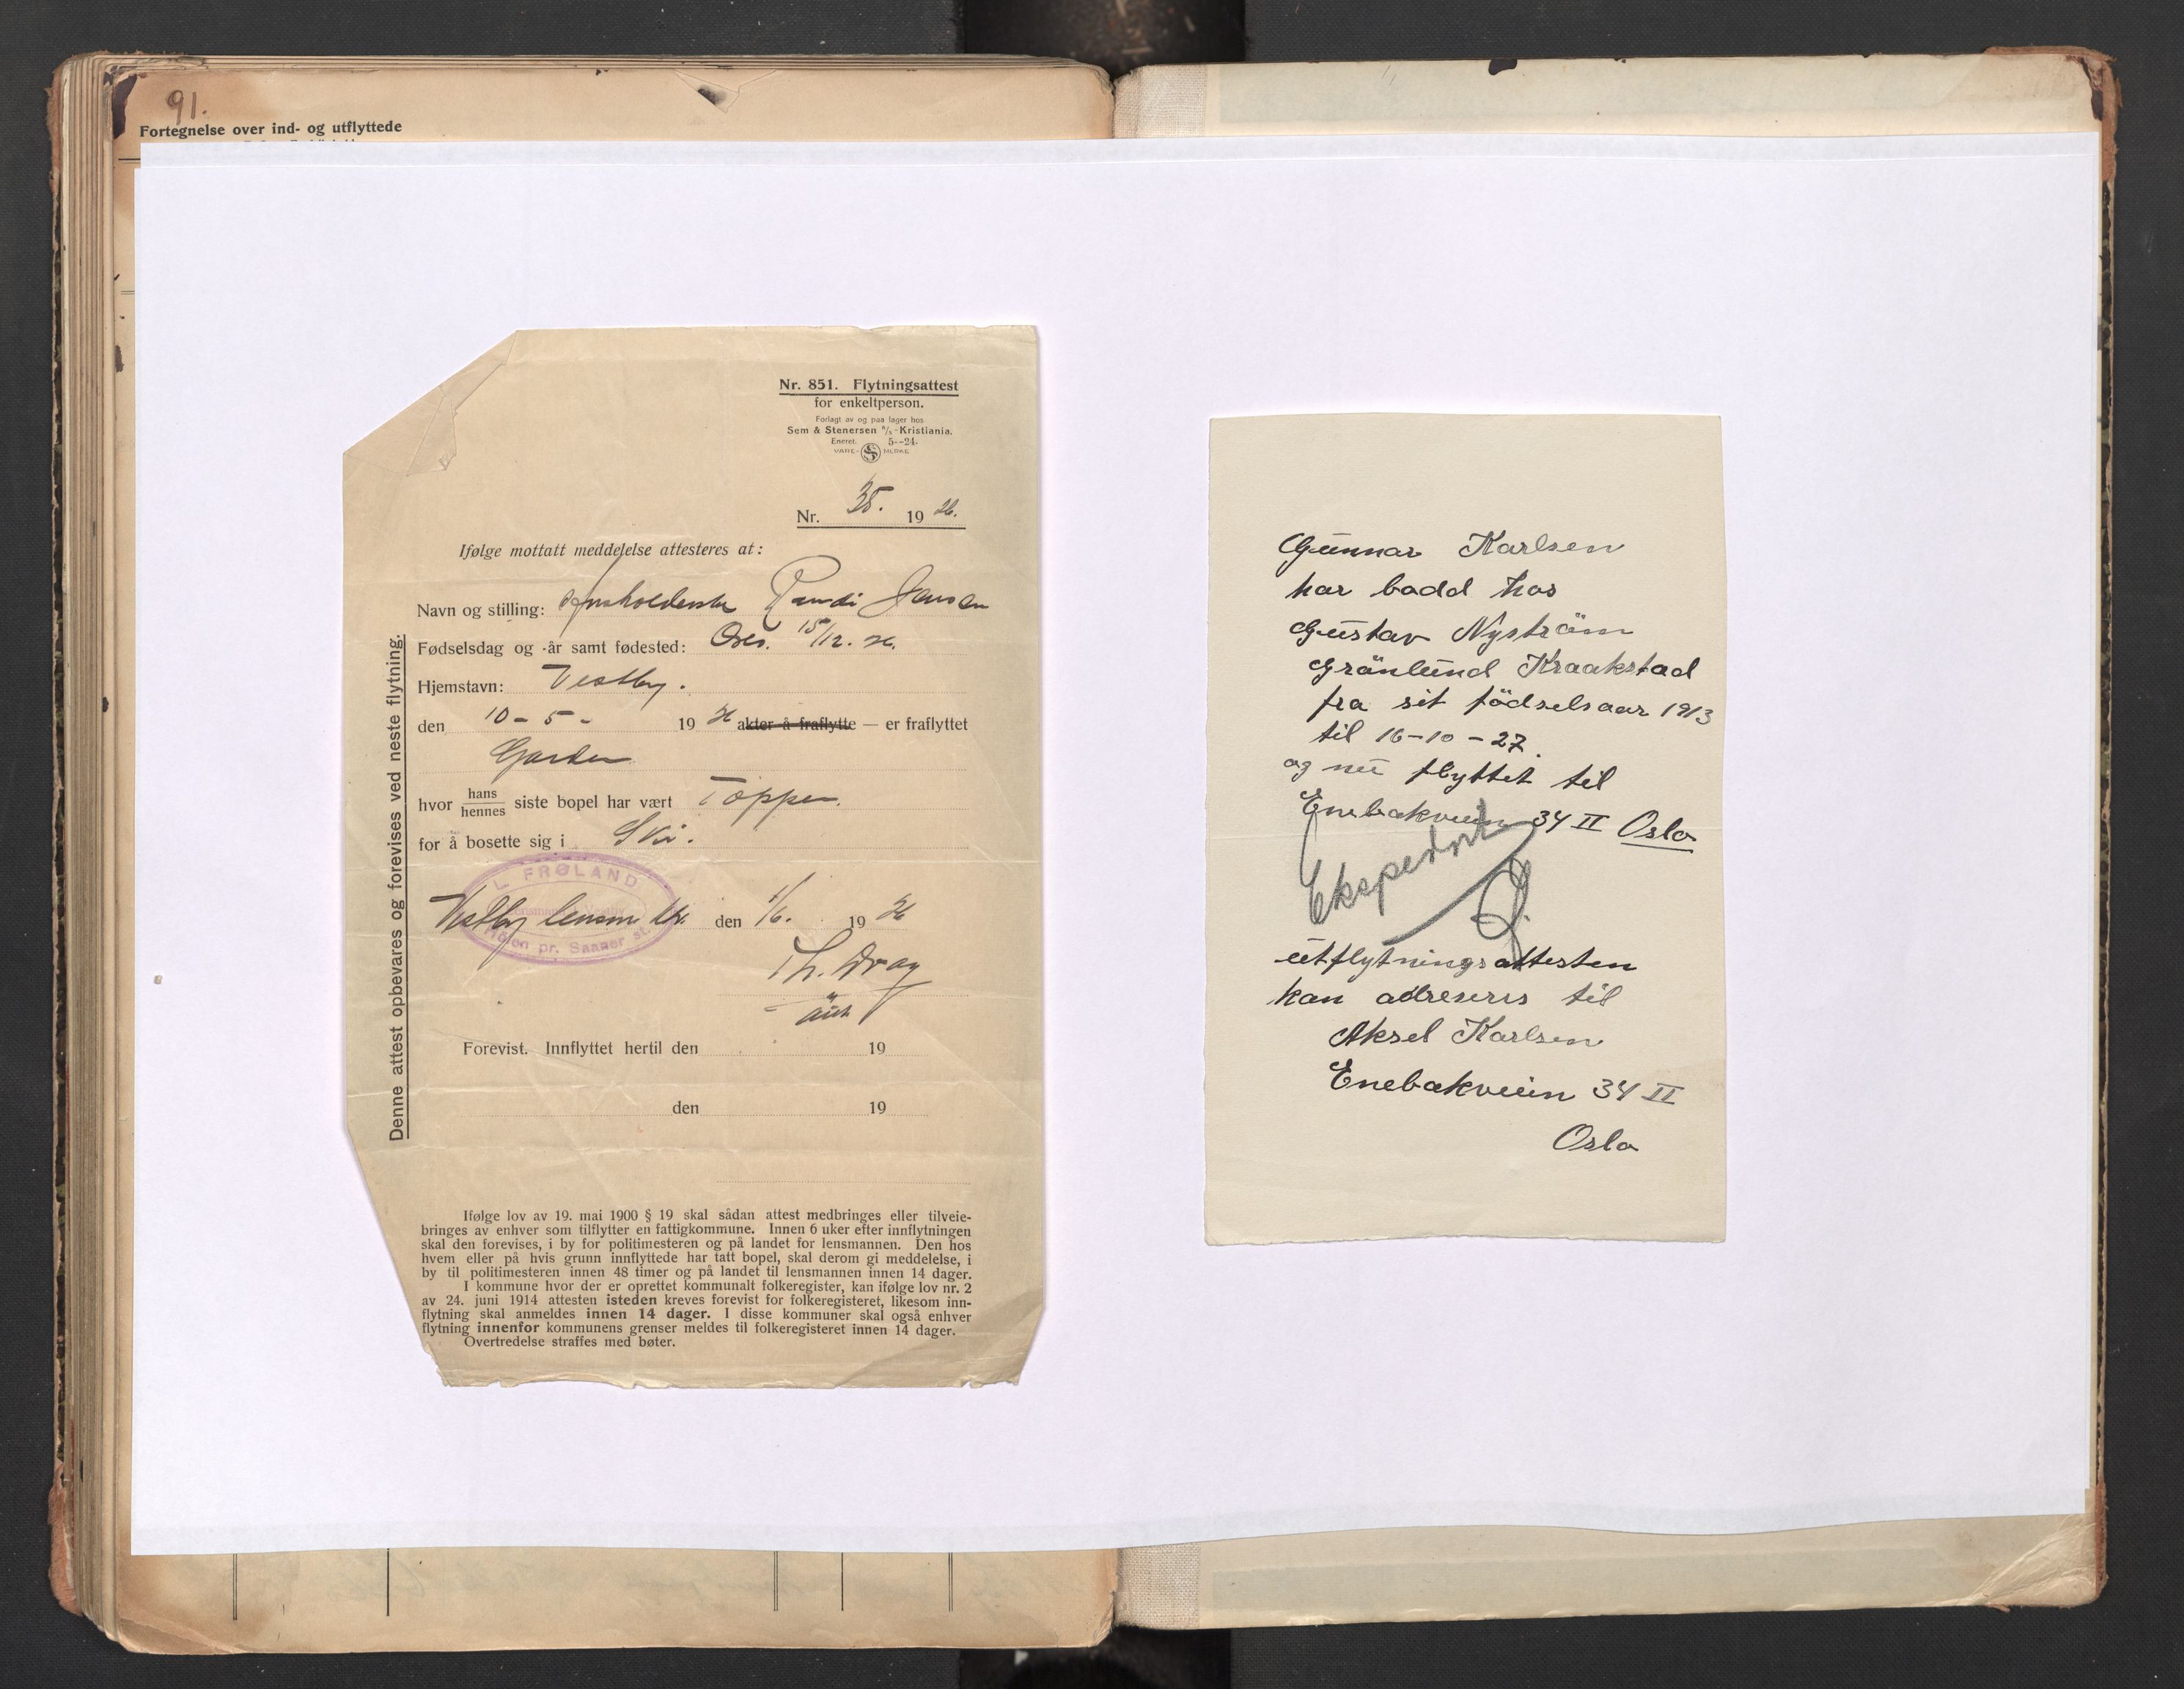 91.
Fortegnelse over ind- og utflyttede
Nr. 851. Flytningsattest
for enkeltperson.
Forlagt av og paa lager hos
Sem & Stenersen A/S - Kristiania.
Eneret. 5--24.
VARE- MERKE
Nr. 35. 19 26.
Ifølge mottatt meddelelse attesteres at:
Navn og stilling: Randi Jensen
Fødselsdag og -år samt fødested: 15/12.
Hjemstavn: Vestby.
den 10 - 5 - 19 26 akter å fraflytte — er fraflyttet
Garder
hvor hans/hennes siste bopel har vært Toppen.
for å bosette sig i Ski.
L. FRØLAND
Vestby lensm. ktr. den 1/6. 19 26
Hølen pr. Saaner st.
Th. Wray
Forevist. Innflyttet hertil den 19
den 19
Denne attest opbevares og forevises ved neste flytning.
Ifølge lov av 19. mai 1900 § 19 skal sådan attest medbringes eller tilveie-
bringes av enhver som tilflytter en fattigkommune. Innen 6 uker efter innflytningen
skal den forevises, i by for politimesteren og på landet for lensmannen. Den hos
hvem eller på hvis grunn innflyttede har tatt bopel, skal derom gi meddelelse, i
by til politimesteren innen 48 timer og på landet til lensmannen innen 14 dager.
I kommune hvor der er oprettet kommunalt folkeregister, kan ifølge lov nr. 2
av 24. juni 1914 attesten isteden kreves forevist for folkeregisteret, likesom inn-
flytning skal anmeldes innen 14 dager. I disse kommuner skal også enhver
flytning innenfor kommunens grenser meldes til folkeregisteret innen 14 dager.
Overtredelse straffes med bøter.
Gunnar Karlsen
har bodd hos
Gustav Nyström
Grönlund Kraakstad
fra sit födselsaar 1913
til 16-10-27.
og nu flyttet til
Enebakveien 34 II Oslo
Ekspedert
utflytningsattesten
kan adreseres til
Aksel Karlsen
Enebakveien 34 II
Oslo